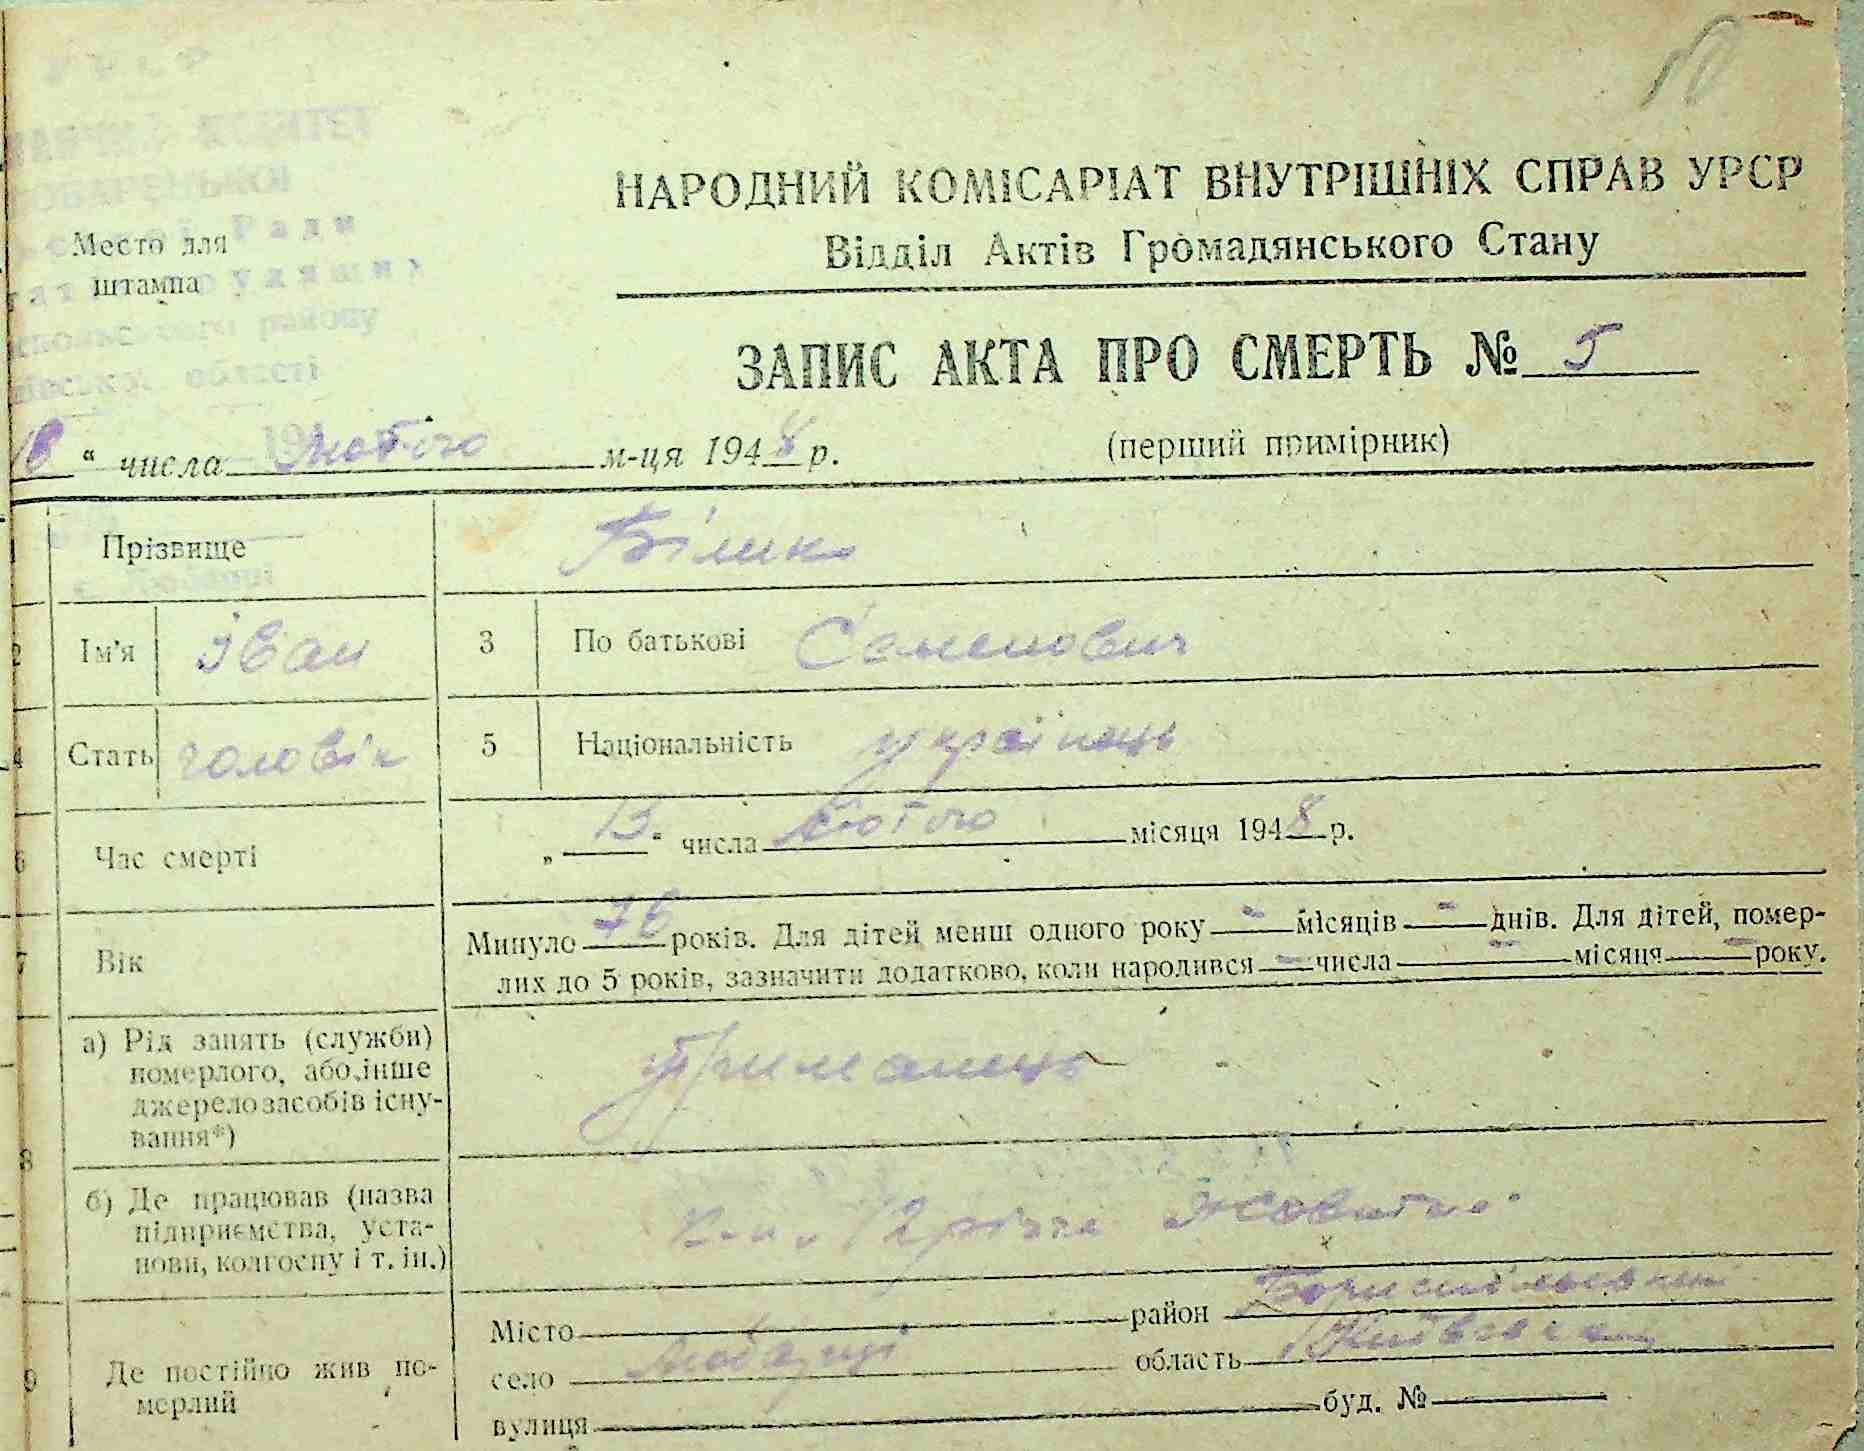 У Р С Р
КОМІТЕТ
Ради
Место для
штампа
району
області
НАРОДНИЙ КОМІСАРІАТ ВНУТРІШНІХ СПРАВ УРСР
Відділ Актів Громадянського Стану
ЗАПИС АКТА ПРО СМЕРТЬ № 5
(перший примірник)
18 " числа Лютого м-ця 1948 р.
1 Прізвище Білик
2 Ім'я Іван 3 По батькові Семенович
4 Стать чоловік 5 Національність українець
6 Час смерті „ 13 " числа Лютого місяця 1948 р.
7 Вік Минуло років. Для дітей менш одного року - місяців - днів. Для дітей, помер-
лих до 5 років, зазначити додатково, коли народився - числа - місяця - року.
8 а) Рід занять (служби)
померлого, або інше
джерело засобів існу-
вання*)
утриманець
б) Де працював (назва
підприємства, уста-
нови, колгоспу і т. ін.)
річчя Жовтня
9 Де постійно жив по-
мерлий
Місто район Бориспільський
село Любарці область Київська
вулиця буд. №